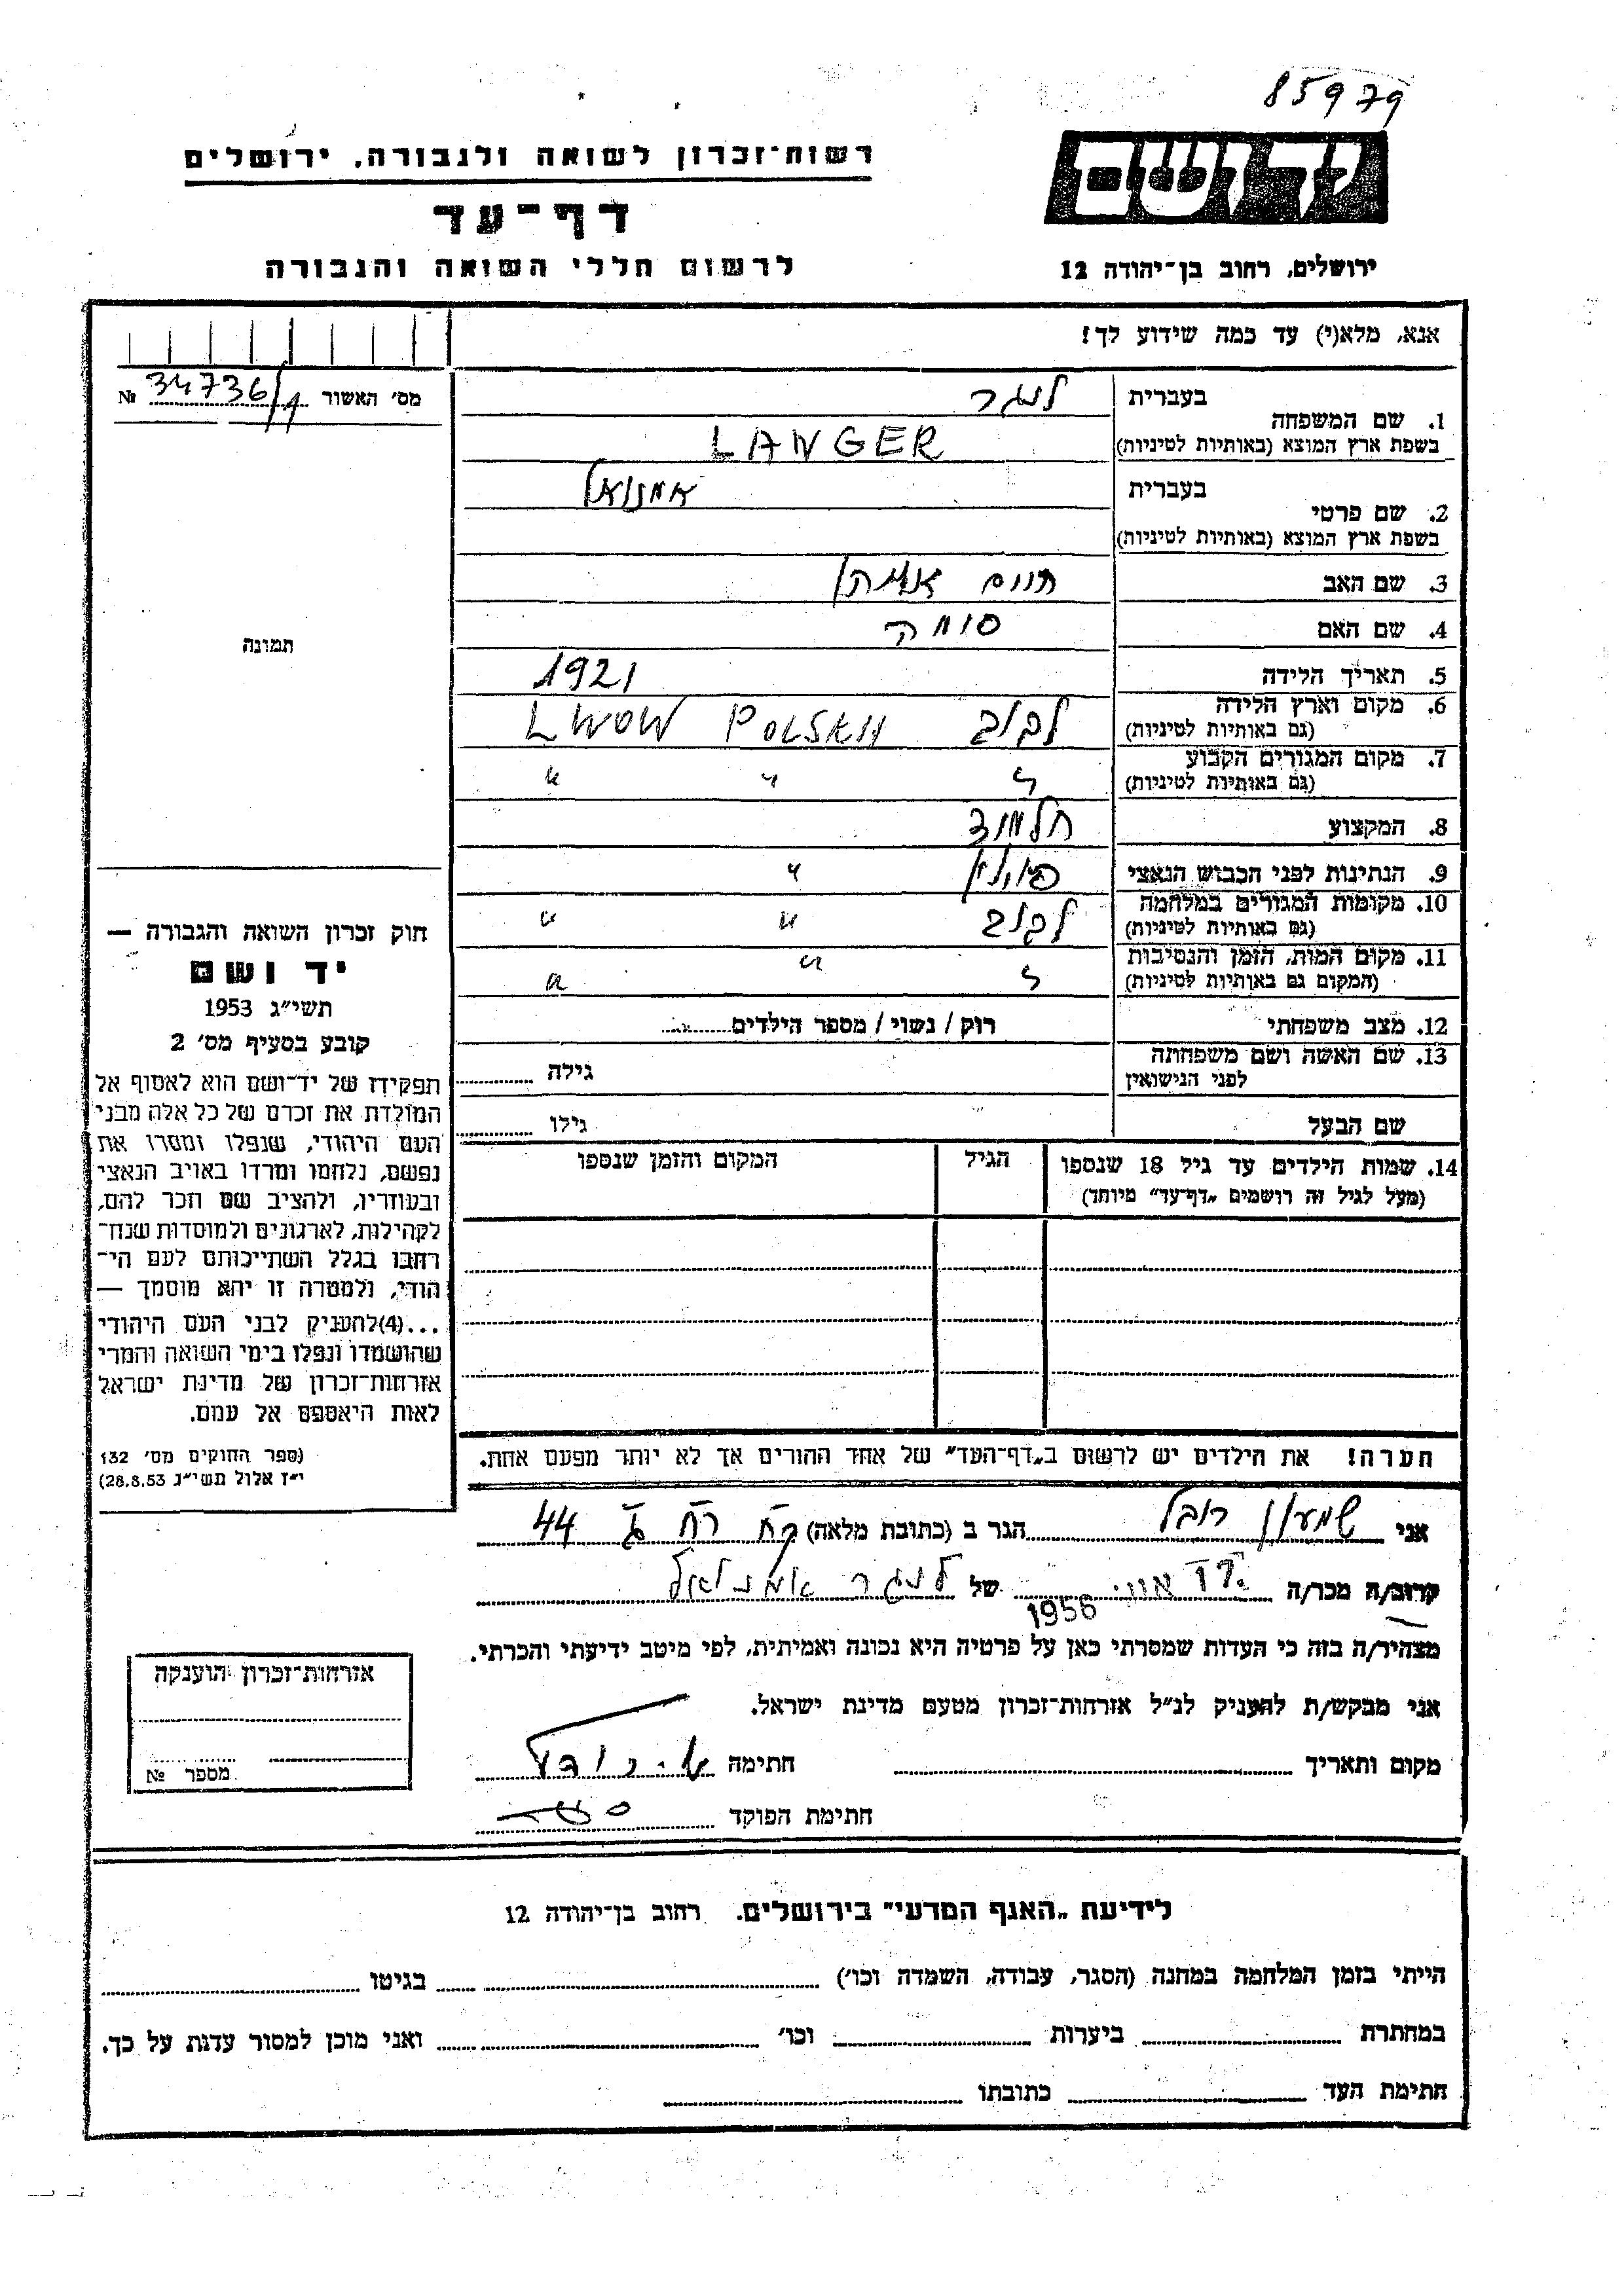 85979
רשות־זכרון לשואה ולגבורה, ירושלים
ידושם
דף־עד
לרשום חללי השואה והגבורה
ירושלים, רחוב בן־יהודה 12
אנא, מלא(י) עד כמה שידוע לך!
מס׳ האשור 34736/1 №
1. שם המשפחה
בעברית לנגר
בשפת ארץ המוצא (באותיות לטיניות) LANGER
2. שם פרטי
בעברית אמנואל
בשפת ארץ המוצא (באותיות לטיניות)
3. שם האב חיים
4. שם האם
5. תאריך הלידה 1921
6. מקום וארץ הלידה
(גם באותיות לטיניות) לבוב POLSKA LWOW
7. מקום המגורים הקבוע
(גם באותיות לטיניות) " " "
8. המקצוע תלמיד
9. הנתינות לפני הכבוש הנאצי פולין "
10. מקומות המגורים במלחמה
(גם באותיות לטיניות) לבוב " "
11. מקום המות, הזמן והנסיבות
(המקום גם באותיות לטיניות) " " "
12. מצב משפחתי רוק / נשוי / מספר הילדים
13. שם האשה ושם משפחתה
לפני הנישואין גילה
שם הבעל גילו
14. שמות הילדים עד גיל 18 שנספו
(מעל לגיל זה רושמים „דף־עד” מיוחד)
הגיל
המקום והזמן שנספו
תמונה
חוק זכרון השואה והגבורה —
יד ושם
תשי״ג 1953
קובע בסעיף מס׳ 2
תפקידו של יד־ושם הוא לאסוף אל
המולדת את זכרם של כל אלה מבני
העם היהודי, שנפלו ומסרו את
נפשם, נלחמו ומרדו באויב הנאצי
ובעוזריו, ולהציב שם וזכר להם,
לקהילות, לארגונים ולמוסדות שנח־
רבו בגלל השתייכותם לעם הי־
הודי, ולמטרה זו יהא מוסמך —
...(4)להעניק לבני העם היהודי
שהושמדו ונפלו בימי השואה והמרי
אזרחות־זכרון של מדינת ישראל
לאות היאספם אל עמם.
(ספר החוקים מס׳ 132
י״ז אלול תשי״ג 28.8.53)
הערה! את הילדים יש לרשום ב„דף־העד” של אחד ההורים אך לא יותר מפעם אחת.
אני שמעון רובל הגר ב (כתובת מלאה) 44
קרוב/ה מכר/ה של לנגר אמנואל
1956
מצהיר/ה בזה כי העדות שמסרתי כאן על פרטיה היא נכונה ואמיתית, לפי מיטב ידיעתי והכרתי.
אני מבקש/ת להעניק לנ״ל אזרחות־זכרון מטעם מדינת ישראל.
מקום ותאריך חתימה
חתימת הפוקד
אזרחות־זכרון הוענקה
מספר №
לידיעת „האגף המדעי” בירושלים. רחוב בן־יהודה 12
הייתי בזמן המלחמה במחנה (הסגר, עבודה, השמדה וכו׳) בגיטו
במחתרת ביערות וכו׳ ואני מוכן למסור עדות על כך.
חתימת העד כתובתו